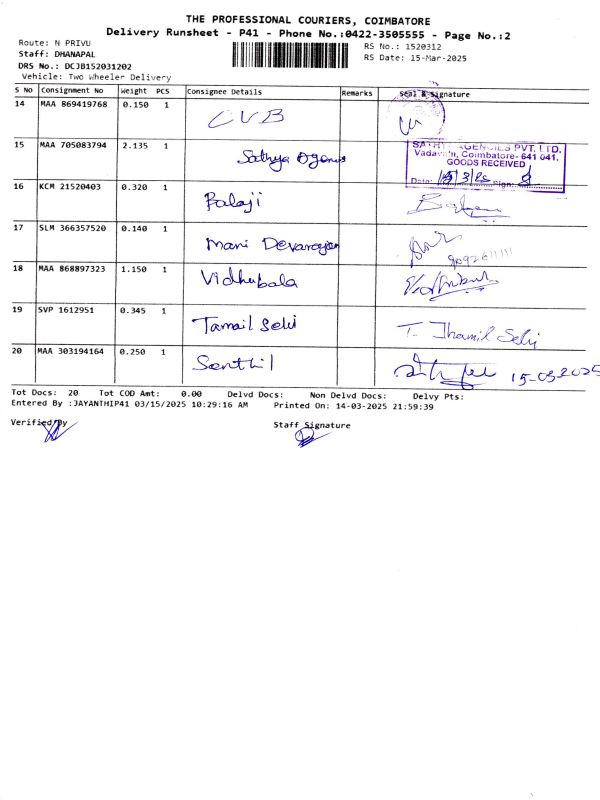 THE PROFESSIONAL COURIERS, COIMBATORE
Delivery Runsheet - P41 - Phone No.:0422-3505555 - Page No.:2
Route: N PRIVU
RS No.: 1520312
Staff: DHANAPAL
RS Date: 15-Mar-2025
DRS No.: DCJB152031202
Vehicle: Two Wheeler Delivery
S No Consignment No Weight PCS Consignee Details Remarks Seal & Signature
14 MAA 869419768 0.150 1 CUB
15 MAA 705083794 2.135 1 Sathya Agencies
AGENCIES PVT. LTD,
Vadavalli, Coimbatore- 641 041.
GOODS RECEIVED
Date: 15/3/25 Sign:
16 KCM 21520403 0.320 1 Balaji
17 SLM 366357520 0.140 1 Mani Devarajan
18 MAA 868897323 1.150 1 Vidhubala
19 SVP 1612951 0.345 1 Tamail Selvi T. Thamil Selvi
20 MAA 303194164 0.250 1 Senthil 15-03-2025
Tot Docs: 20 Tot COD Amt: 0.00 Delvd Docs: Non Delvd Docs: Delvy Pts:
Entered By :JAYANTHIP41 03/15/2025 10:29:16 AM Printed On: 14-03-2025 21:59:39
Verified By Staff Signature